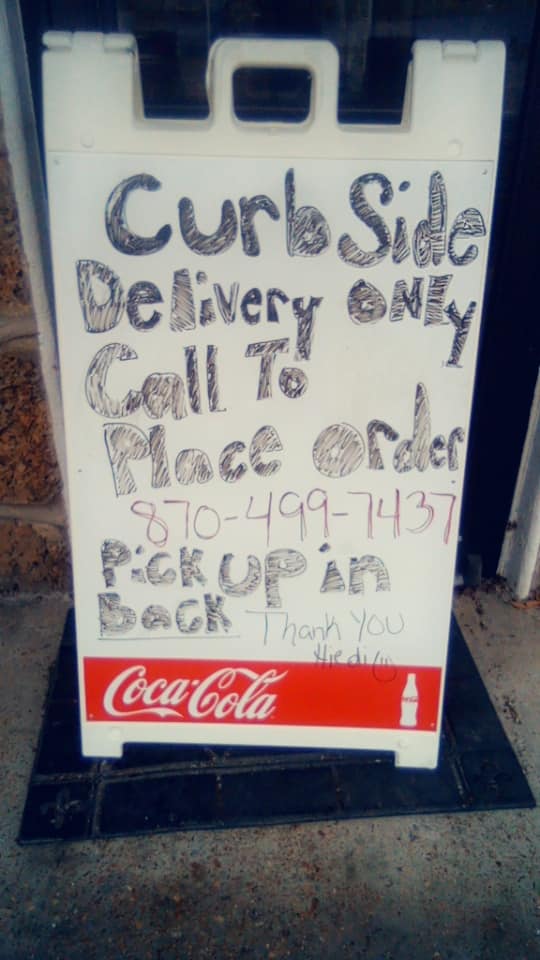 Curb Side
Delivery ONLY
Call To
Place order
870-499-7437
Pick up in
Back
Thank You
Hiedi
Coca-Cola